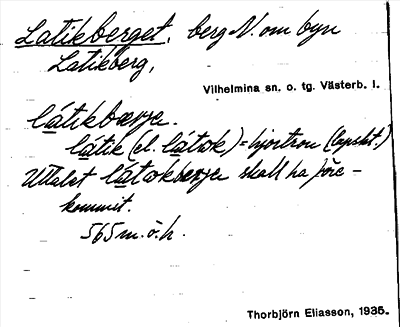 Latikberget, berg N. om byn
Latikberg,
Vilhelmina sn. o. tg. Västerb. l.
látikbærje.
látik (el. látɑk) = hjortron (lapskt.)
Uttalet látɑkbærje skall ha före-
kommit.
565 m. ö. h.
Thorbjörn Eliasson, 1935.